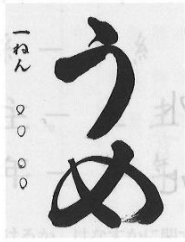 うめ
一ねん ○○○○